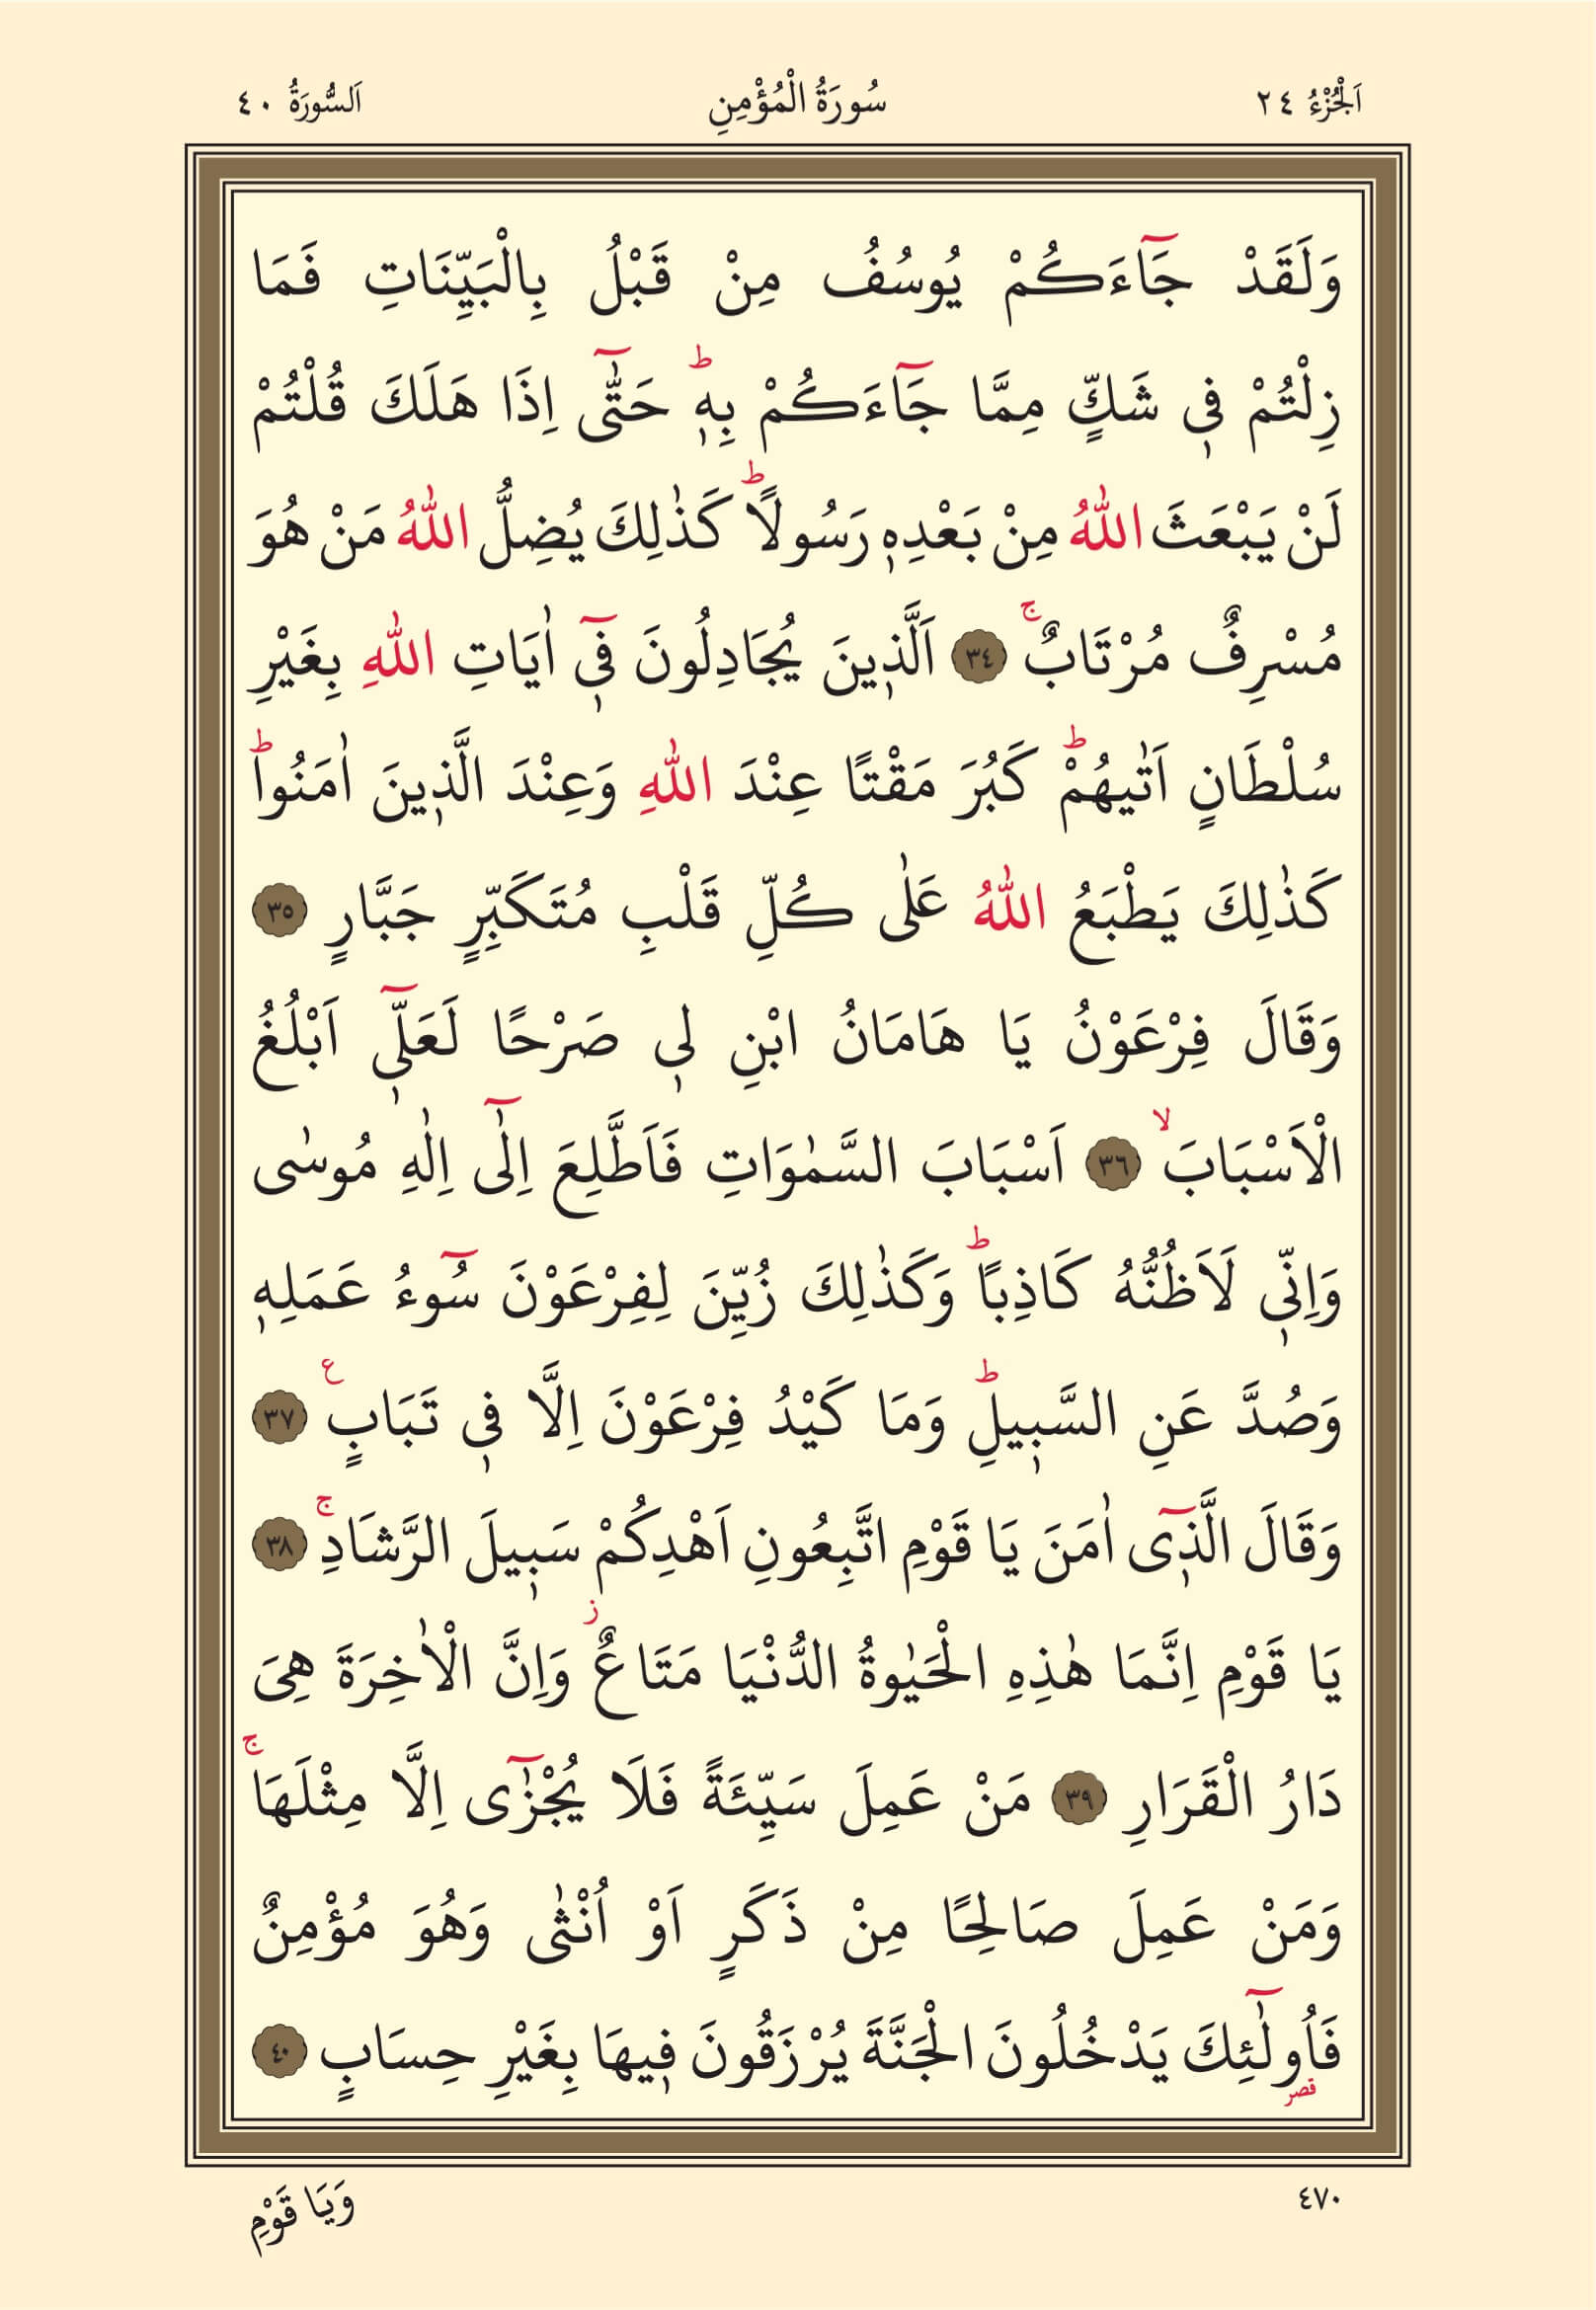 اَلْجُزْءُ ٢٤ سُورَةُ الْمُؤْمِنِ اَلسُّورَةُ ٤٠
وَلَقَدْ جَٓاءَكُمْ يُوسُفُ مِنْ قَبْلُ بِالْبَيِّنَاتِ فَمَا
زِلْتُمْ فٖى شَكٍّ مِمَّا جَٓاءَكُمْ بِهٖؕ حَتّٰٓى اِذَا هَلَكَ قُلْتُمْ
لَنْ يَبْعَثَ اللّٰهُ مِنْ بَعْدِهٖ رَسُولاًؕ كَذٰلِكَ يُضِلُّ اللّٰهُ مَنْ هُوَ
مُسْرِفٌ مُرْتَابٌۚ ٣٤ اَلَّذٖينَ يُجَادِلُونَ فٖٓى اٰيَاتِ اللّٰهِ بِغَيْرِ
سُلْطَانٍ اَتٰيهُمْؕ كَبُرَ مَقْتًا عِنْدَ اللّٰهِ وَعِنْدَ الَّذٖينَ اٰمَنُواؕ
كَذٰلِكَ يَطْبَعُ اللّٰهُ عَلٰى كُلِّ قَلْبِ مُتَكَبِّرٍ جَبَّارٍ ٣٥
وَقَالَ فِرْعَوْنُ يَا هَامَانُ ابْنِ لٖى صَرْحًا لَعَلّٖٓى اَبْلُغُ
الْاَسْبَابَۙ ٣٦ اَسْبَابَ السَّمٰوَاتِ فَاَطَّلِعَ اِلٰٓى اِلٰهِ مُوسٰى
وَاِنّٖى لَاَظُنُّهُ كَاذِبًاؕ وَكَذٰلِكَ زُيِّنَ لِفِرْعَوْنَ سُٓوءُ عَمَلِهٖ
وَصُدَّ عَنِ السَّبٖيلِؕ وَمَا كَيْدُ فِرْعَوْنَ اِلَّا فٖى تَبَابٍ ع ٣٧
وَقَالَ الَّذٖٓى اٰمَنَ يَا قَوْمِ اتَّبِعُونِ اَهْدِكُمْ سَبٖيلَ الرَّشَادِۚ ٣٨
يَا قَوْمِ اِنَّمَا هٰذِهِ الْحَيٰوةُ الدُّنْيَا مَتَاعٌؗ وَاِنَّ الْاٰخِرَةَ هِىَ
دَارُ الْقَرَارِ ٣٩ مَنْ عَمِلَ سَيِّئَةً فَلَا يُجْزٰٓى اِلَّا مِثْلَهَاۚ
وَمَنْ عَمِلَ صَالِحًا مِنْ ذَكَرٍ اَوْ اُنْثٰى وَهُوَ مُؤْمِنٌ
فَاُولٰٓئِكَ يَدْخُلُونَ الْجَنَّةَ يُرْزَقُونَ فٖيهَا بِغَيْرِ حِسَابٍ ٤٠
قصر
٤٧٠ وَيَا قَوْمِ